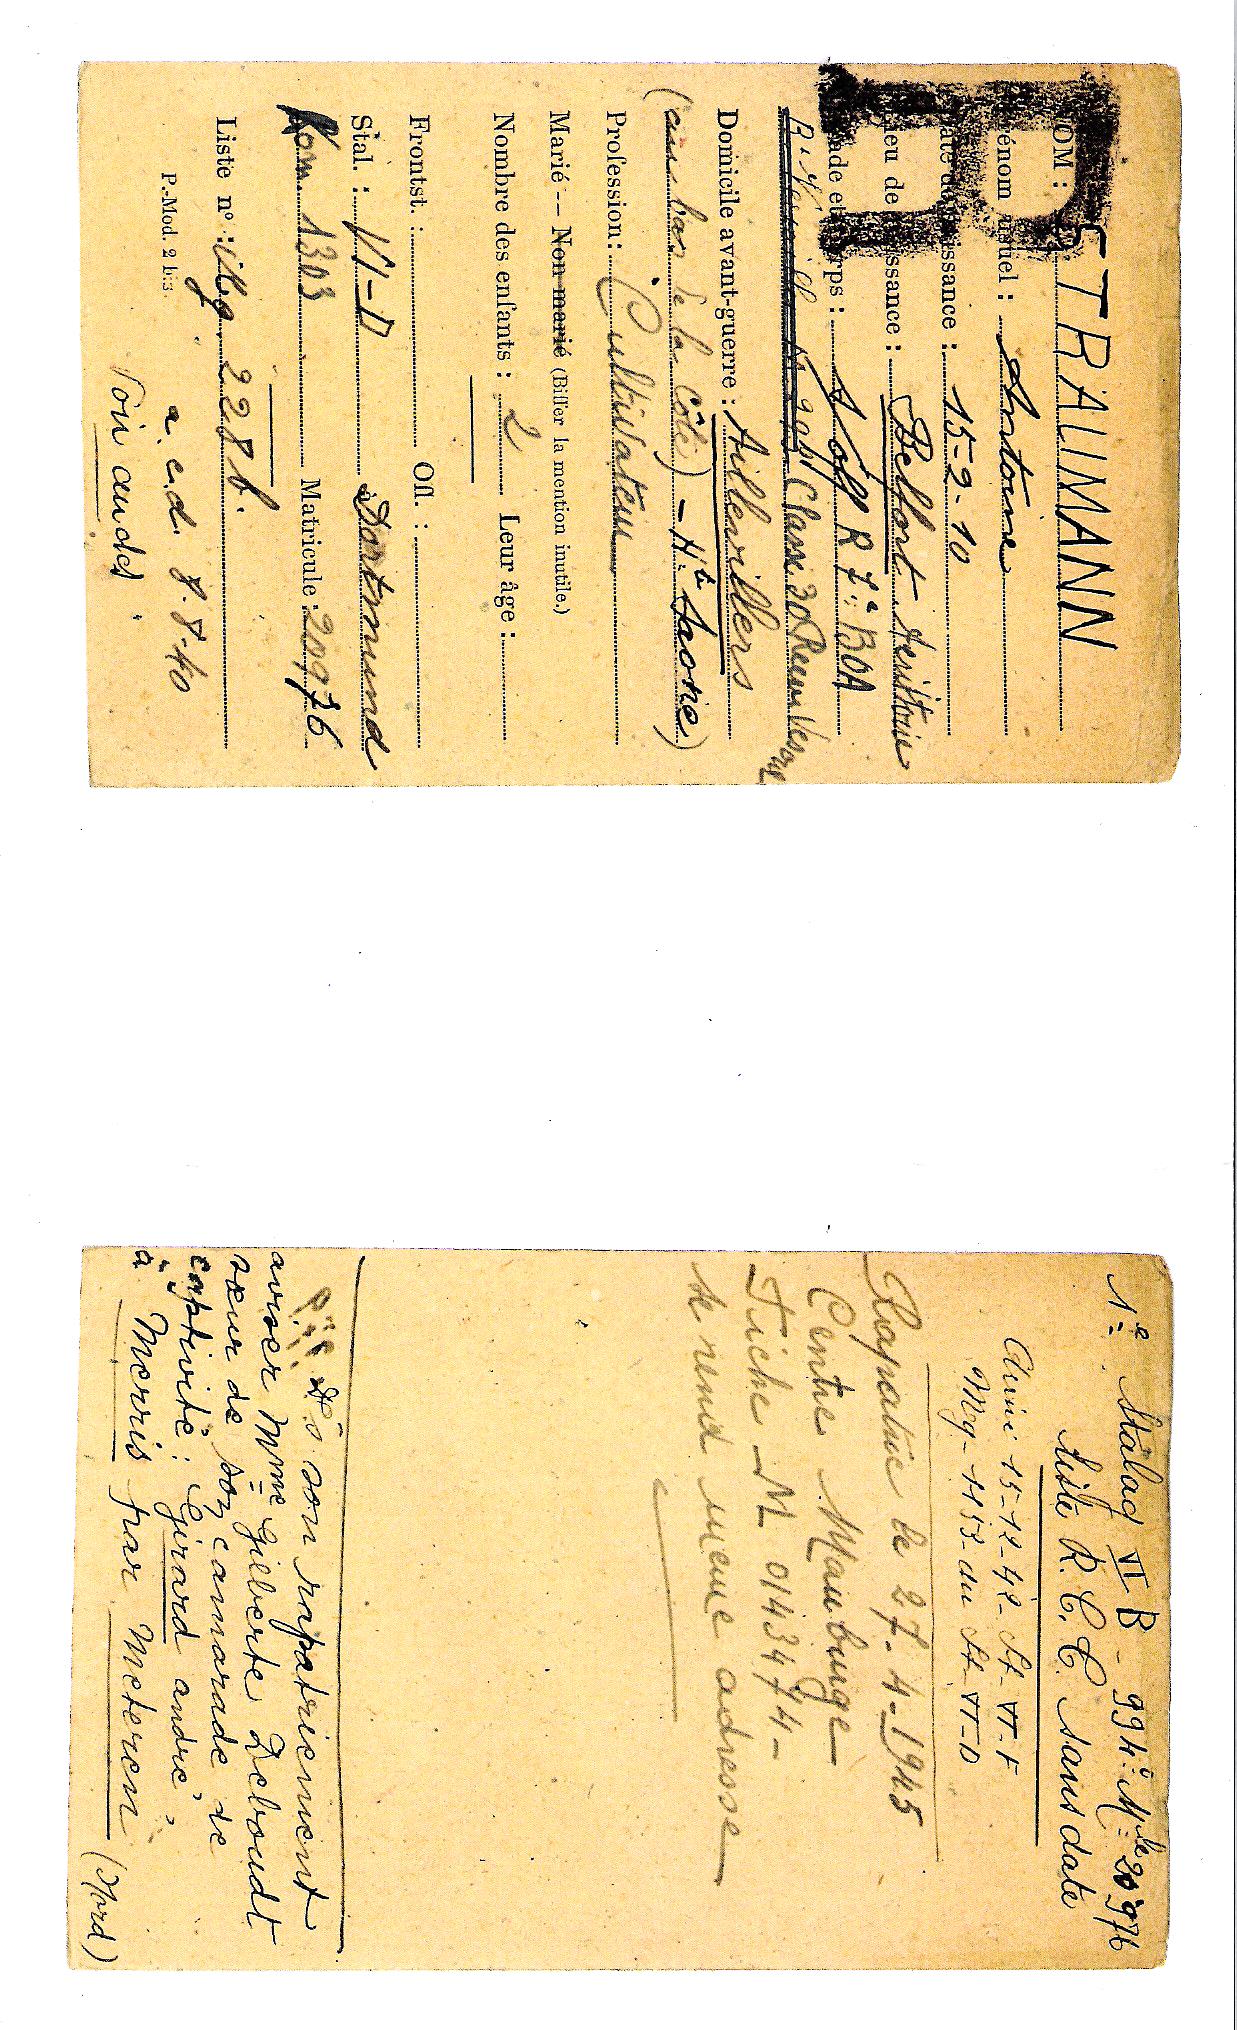 R
NOM : STRALIMANN
Prénom usuel : Antoine
Date de naissance : 15-2-10
Lieu de naissance : Belfort Territoire
Grade et corps : S/Off R 7e BOA
Classe 30 Recrut Vesoul
Domicile avant-guerre : Aillevillers
(au bas de la Côte) - Hte Saone)
Profession : Cultivateur
Marié -- Non marié (Biffer la mention inutile.)
Nombre des enfants : 2 Leur âge :
Frontst. : Ofl. :
Stal. : VI-D à Dortmund
Kom. 1303 Matricule : 20976
Liste n° : illg. 228 b.
a. c.d. 8.8.40
P.-Mod. 2 bis.
Voir au dos
1°= Stalag VI B - 994° Mle 20976
Liste R.C.C. sans date
Arrivé 15-12-42- St- VI-F
Mg- 1153- du St- VI-D
Rapatrié le 27.4-1945
Centre Maubeuge
Fiche M 0143474-
se rend même adresse
Dès son rapatriement
aviser Mme Gilberte Deboudt
sœur de son camarade de
captivité : Girard andré,
à Merris par Meteren (Nord)